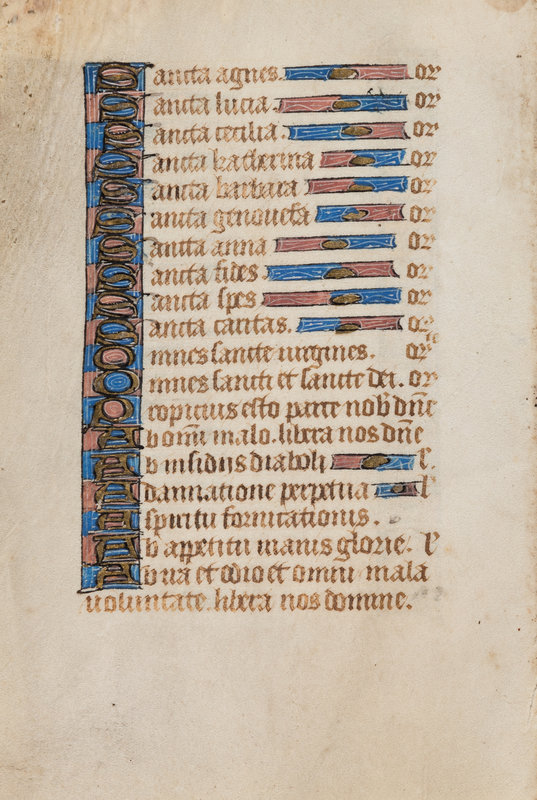 Sancta agnes. or
Sancta lucia. or
Sancta cecilia. or
Sancta katherina or
Sancta barbara or
Sancta genouefa or
Sancta anna or
Sancta fides or
Sancta spes or
Sancta caritas. or
Omnes sancte uirgines. or
Omnes sancti et sancte dei. or
Propicius esto parce nob dñe
Ab omi malo. libera nos dñe
Ab insidijs diaboli l.
A dannatione perpetua l
A spiritu fornicationis.
Ab appetitu inanis glorie. l
Ab ira et odio et omni mala
uoluntate. libera nos domine.